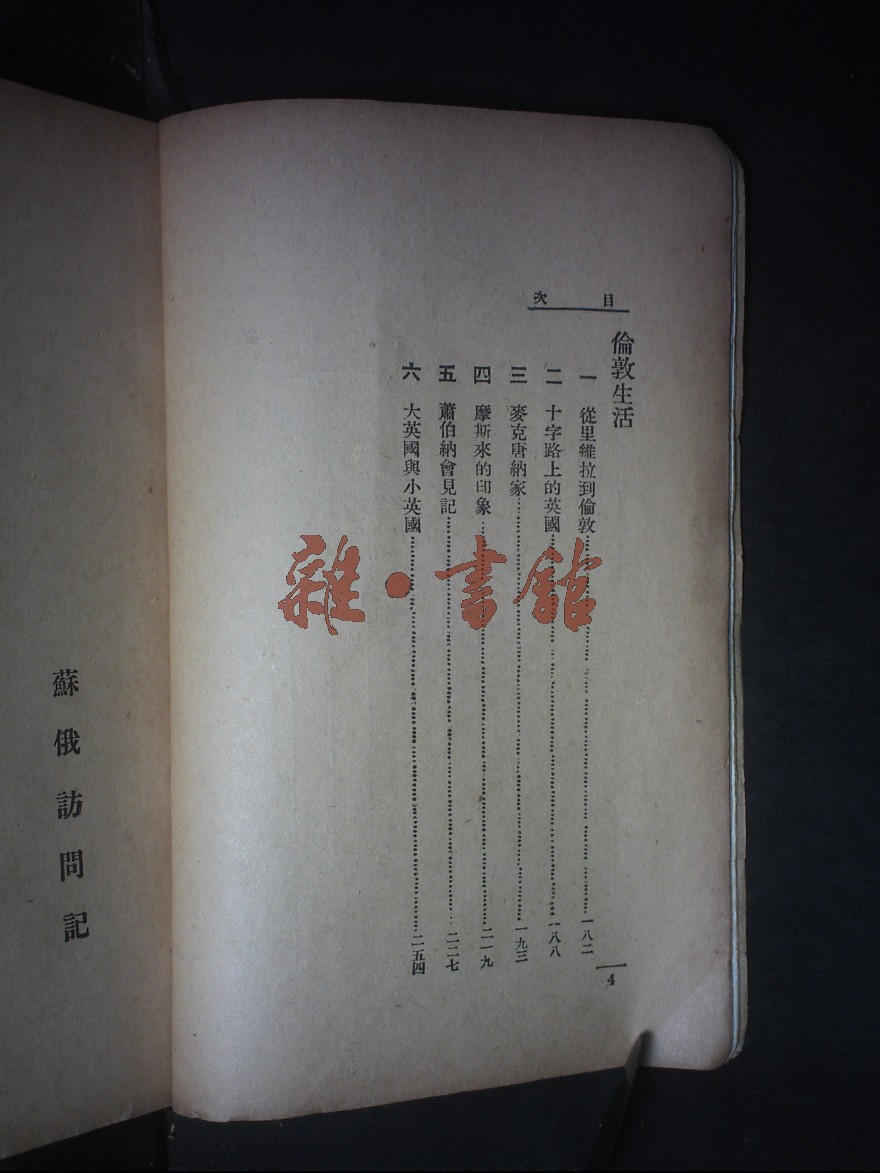 目次
倫敦生活
一 從里維拉到倫敦 一八二
二 十字路上的英國 一八八
三 麥克唐納家 一九三
四 摩斯來的印象 二一九
五 蕭伯納會見記 二二七
六 大英國與小英國 二五四
4
蘇俄訪問記
雜·書館